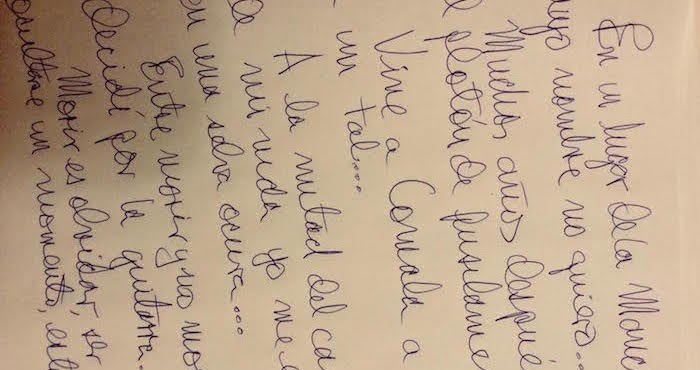 En un lugar de la Manc
uyo nombre no quiero...
Muchos años despué
el plotón de fusilame
Vine a Comala a
un tal...
A la mitad del ca
de mi vida yo me e
en una selva ocura...
Entre morir y no mo
decidí por la guitarra.
Morir es olvidar, ser
ocultarse un momento, est